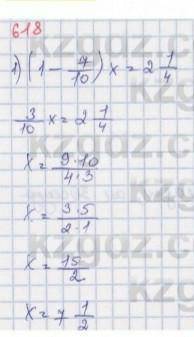 618
1) (1 - 7/10) x = 2 1/4
3/10 x = 2 1/4
x = 9·10/4·3
x = 3·5/2·1
x = 15/2
x = 7 1/2